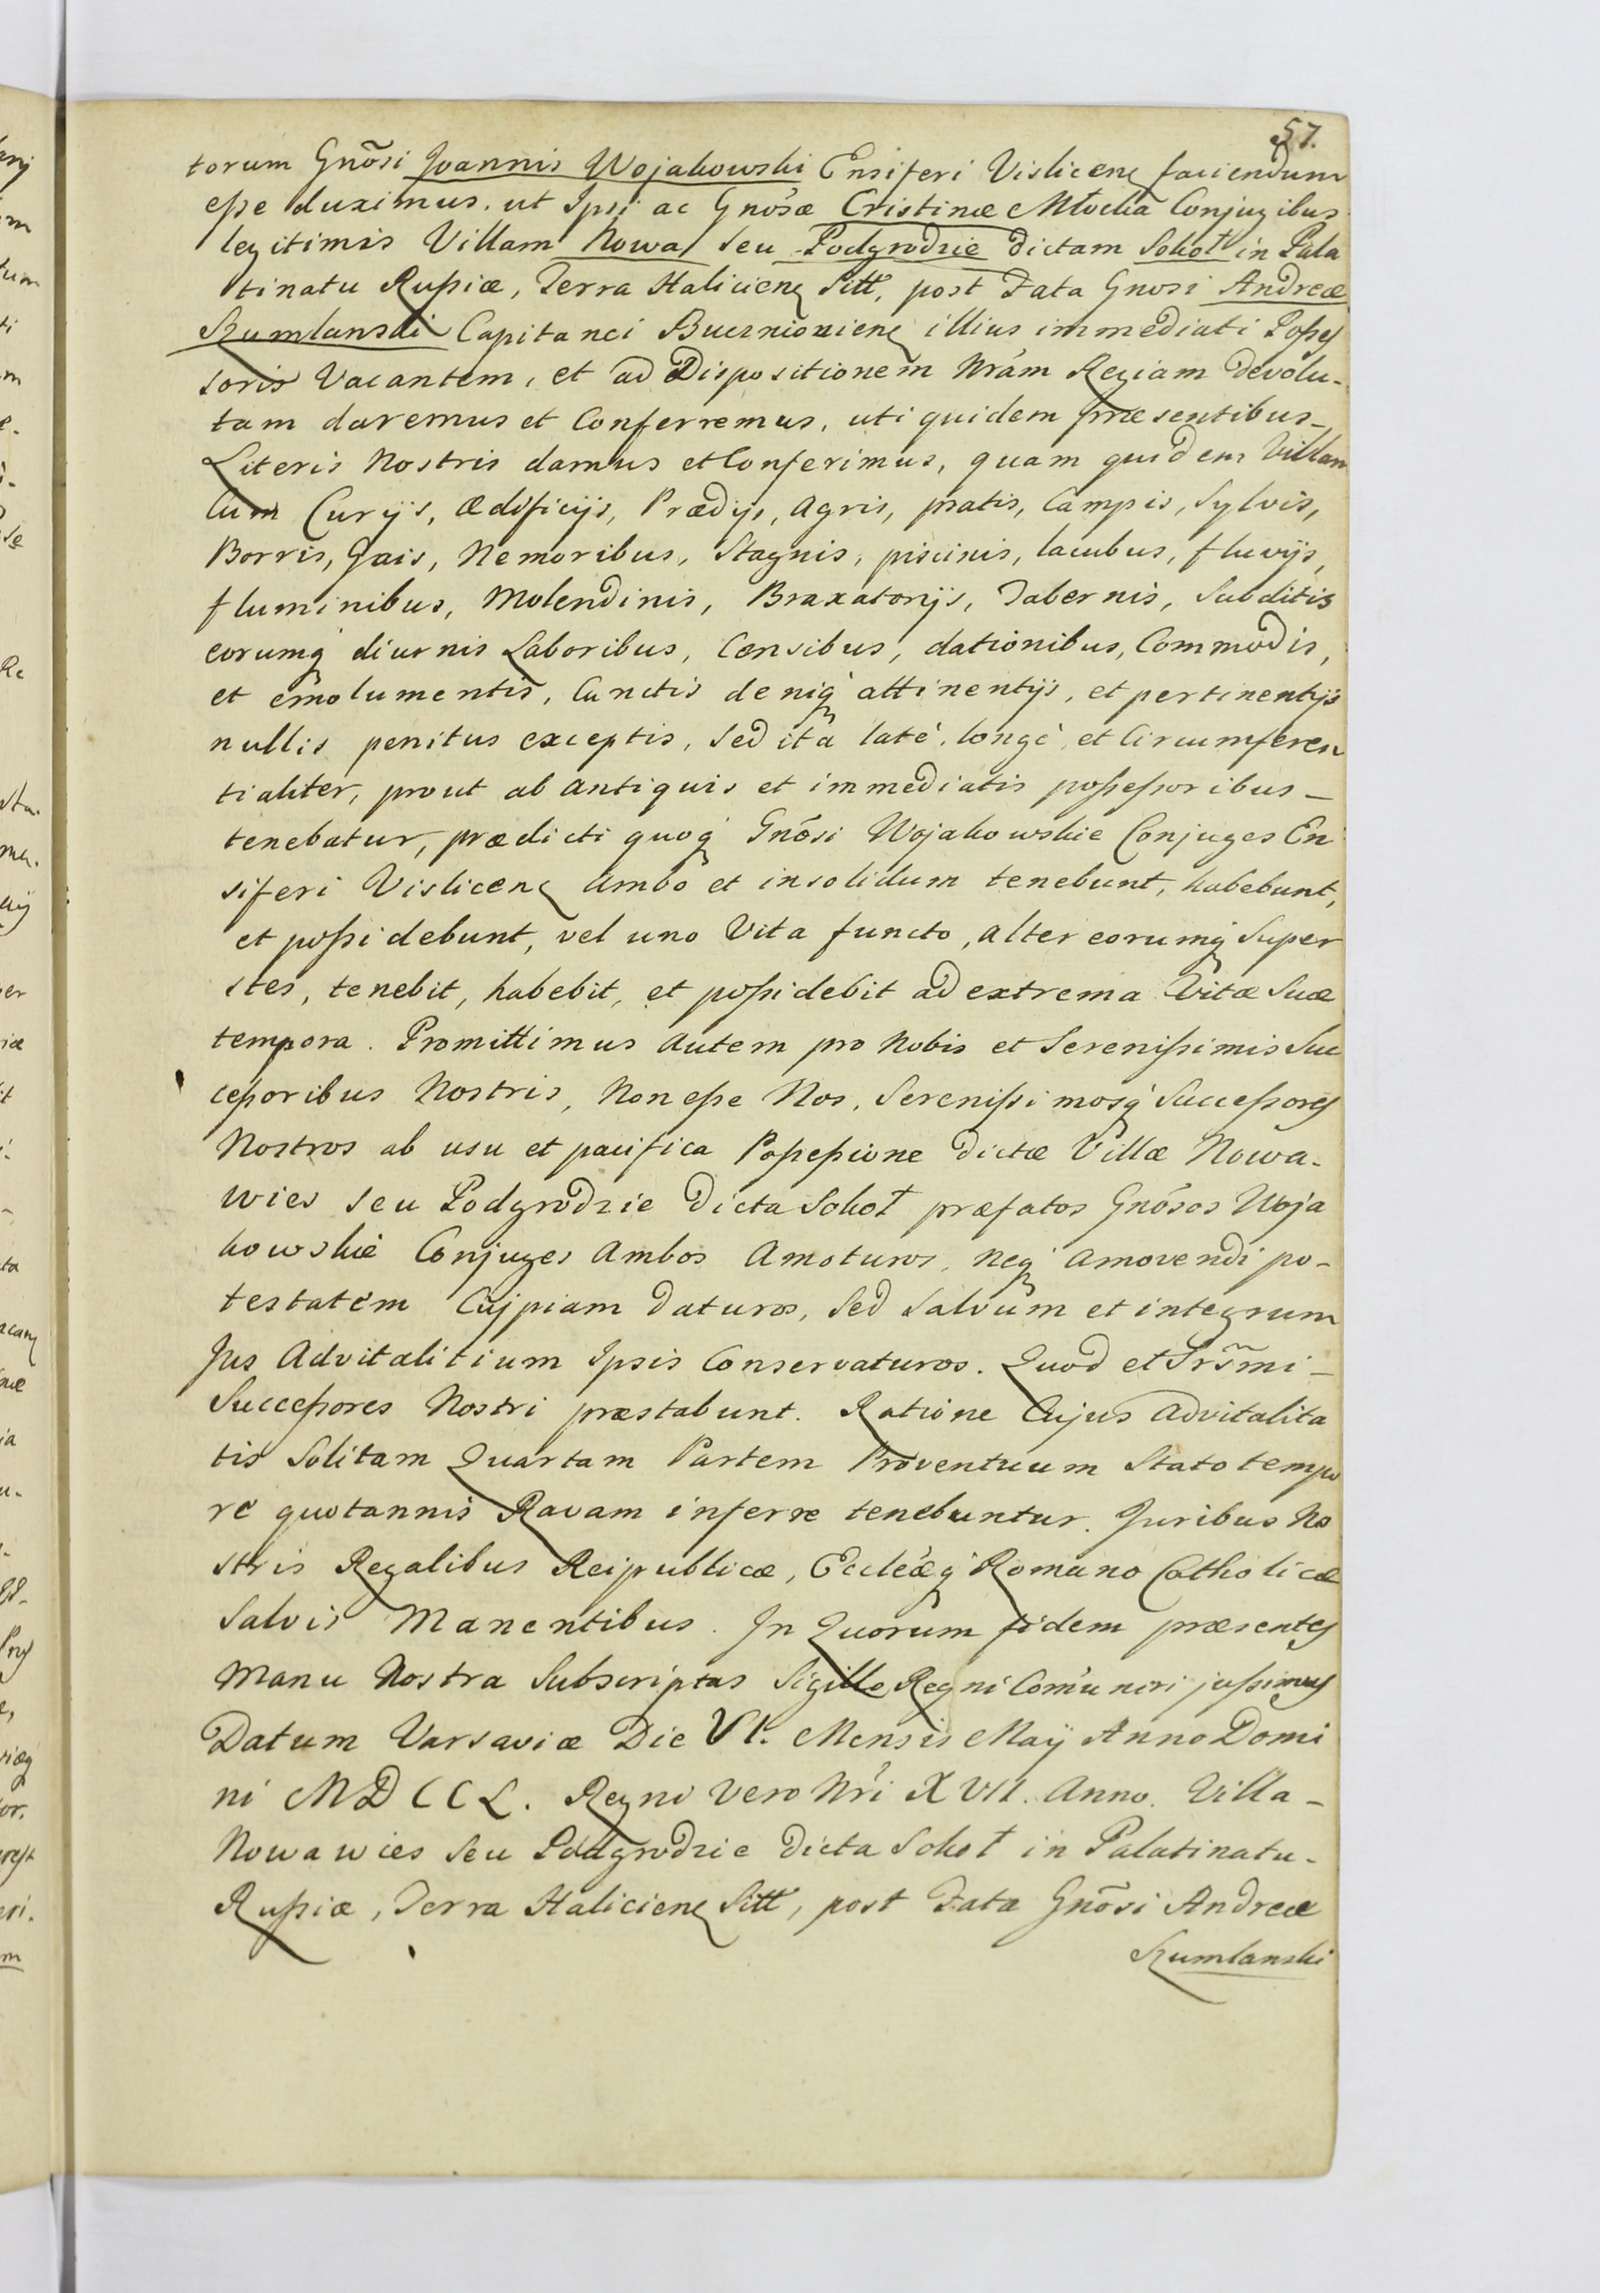 57.
torum Gnõsi Joannis Wojakowski Ensiferi Vislicenę faciendum
eße duximus, ut Ipsi ac Gnósæ Cristinæ Młocka Conjugibus
legitimis Villam Nowa seu Podgrodzie dictam Sokoł in Pala
tinatu Rußiæ, Terra Haliciens Sitt, post Fata Gnosi Andreæ
Szumlanski Capitanei Buczniowiens illius immediati Poßeß
soris Vacantem, et ad Dispositionem Nrám Regiam devolu-
tam daremus et Conferremus, uti quidem præsentibus-
Literis Nostris damus et Conferimus, quam quidem Villam
Cum Curijs, Ædificijs, Prædijs, Agris, pratis, Campis, Sylvis,
Borris, Gais, Nemoribus, Stagnis, piscinis, lacubus, fluvijs,
fluminibus, Molendinis, Braxatorijs, Tabernis, Subditis
eorumq́ diurnis Laboribus, Censibus, dationibus, Commodis,
et emolumentis, Cunctis deniq́ attinentijs, et pertinentijs
nullis penitus exceptis, sed ita latè, longè, et Circumferen
tialiter, prout ab antiquis et immediatis poßeßoribus-
tenebatur, prædicti quoq́ Gnõsi Wojakowskie Conjuges En
siferi Vislicens ambo et insolidum tenebunt, habebunt,
et poßidebunt, vel uno Vita functo, alter eorumq́ Super
stes, tenebit, habebit, et poßidebit ad extrema Vitæ Suæ
tempora. Promittimus autem pro Nobis et Serenißimis Suc
ceßoribus Nostris, Non eße Nos, Serenißimosq́ Succeßores
Nostros ab usu et pacifica Poßeßione dictæ Villæ Nowa-
wies seu Podgrodzie dicta Sokoł præfatos Gnósos Woja
kowskie Conjuges Ambos Amoturos, neq́ amovendi po-
testatem Cujpiam daturos, sed salvum et integrum
Jus Advitalitium Ipsis Conservaturos. Quod et Srs̃mi-
Succeßores Nostri præstabunt. Ratione Cujus advitalita
tis Solitam Quartam Partem Proventuum Stato tempo
re quotannis Ravam inferre tenebuntur. Juribus No
stris Regalibus Reipublicæ, Eccleæq́ Romano Catholicæ
Salvis Manentibus. In Quorum fidem præsentes
Manu Nostra Subscriptas Sigillo Regni Comúniri jußimus
Datum Varsaviæ Die VI. Mensis Maÿ Anno Domi
ni MDCCL. Regni Vero Nri XVII. Anno. Villa-
Nowawies seu Podgrodzie dicta Sokoł in Palatinatu-
Rußiæ, Terra Haliciens Sitt, post Fata Gnõsi Andreæ
Szumlanski